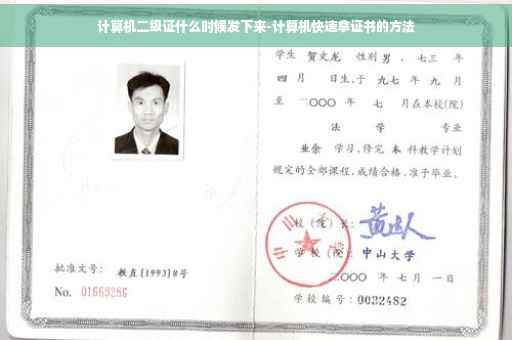 计算机二级证什么时候发下来-计算机快速拿证书的方法
学生 贺文龙 性别 男 ，七三 年
四 月 日生，于 九七 年 九 月
至 二〇〇〇 年 七 月在本校(院)
法 学 专业
业余 学习，修完 本 科教学计划
规定的全部课程，成绩合格，准予毕业。
校（院）长：
学 校（院）：中山大学
二〇〇〇 年 七 月 一 日
学校编号：0032482
批准文号： 教直[1993]8号
No. 01669286